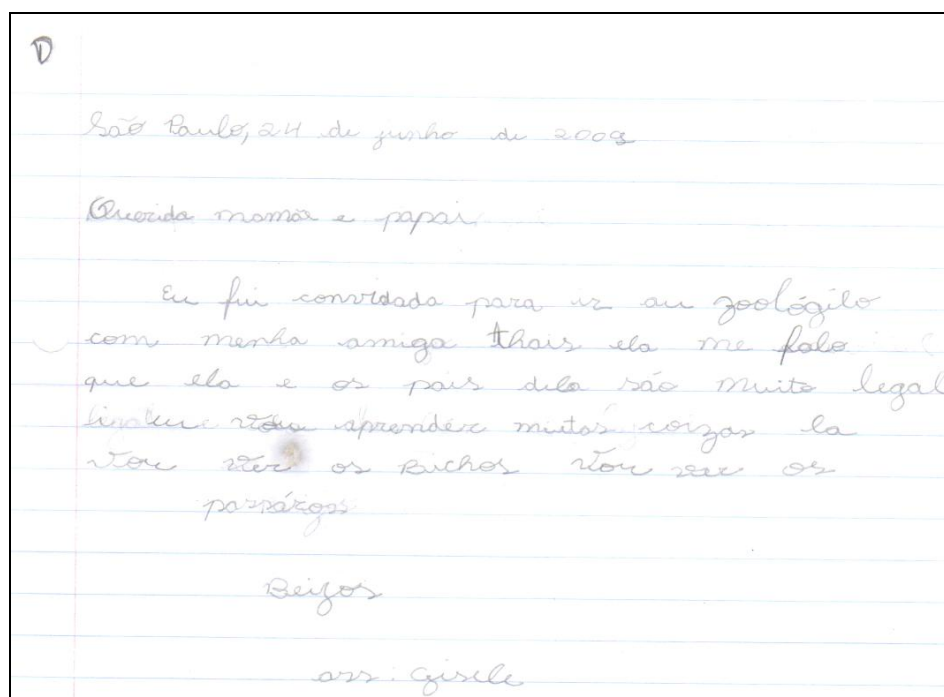 D
São Paulo, 24 de junho de 2009
Querida mamãe e papai
Eu fui convidada para ir au zoológito
com menha amiga thais ela me falo
que ela e os pais dela são muito legal
eu vou aprender muitas coizas la
vou ver os Bichos vou ver os
passáros
Beizos
ass: Gisele